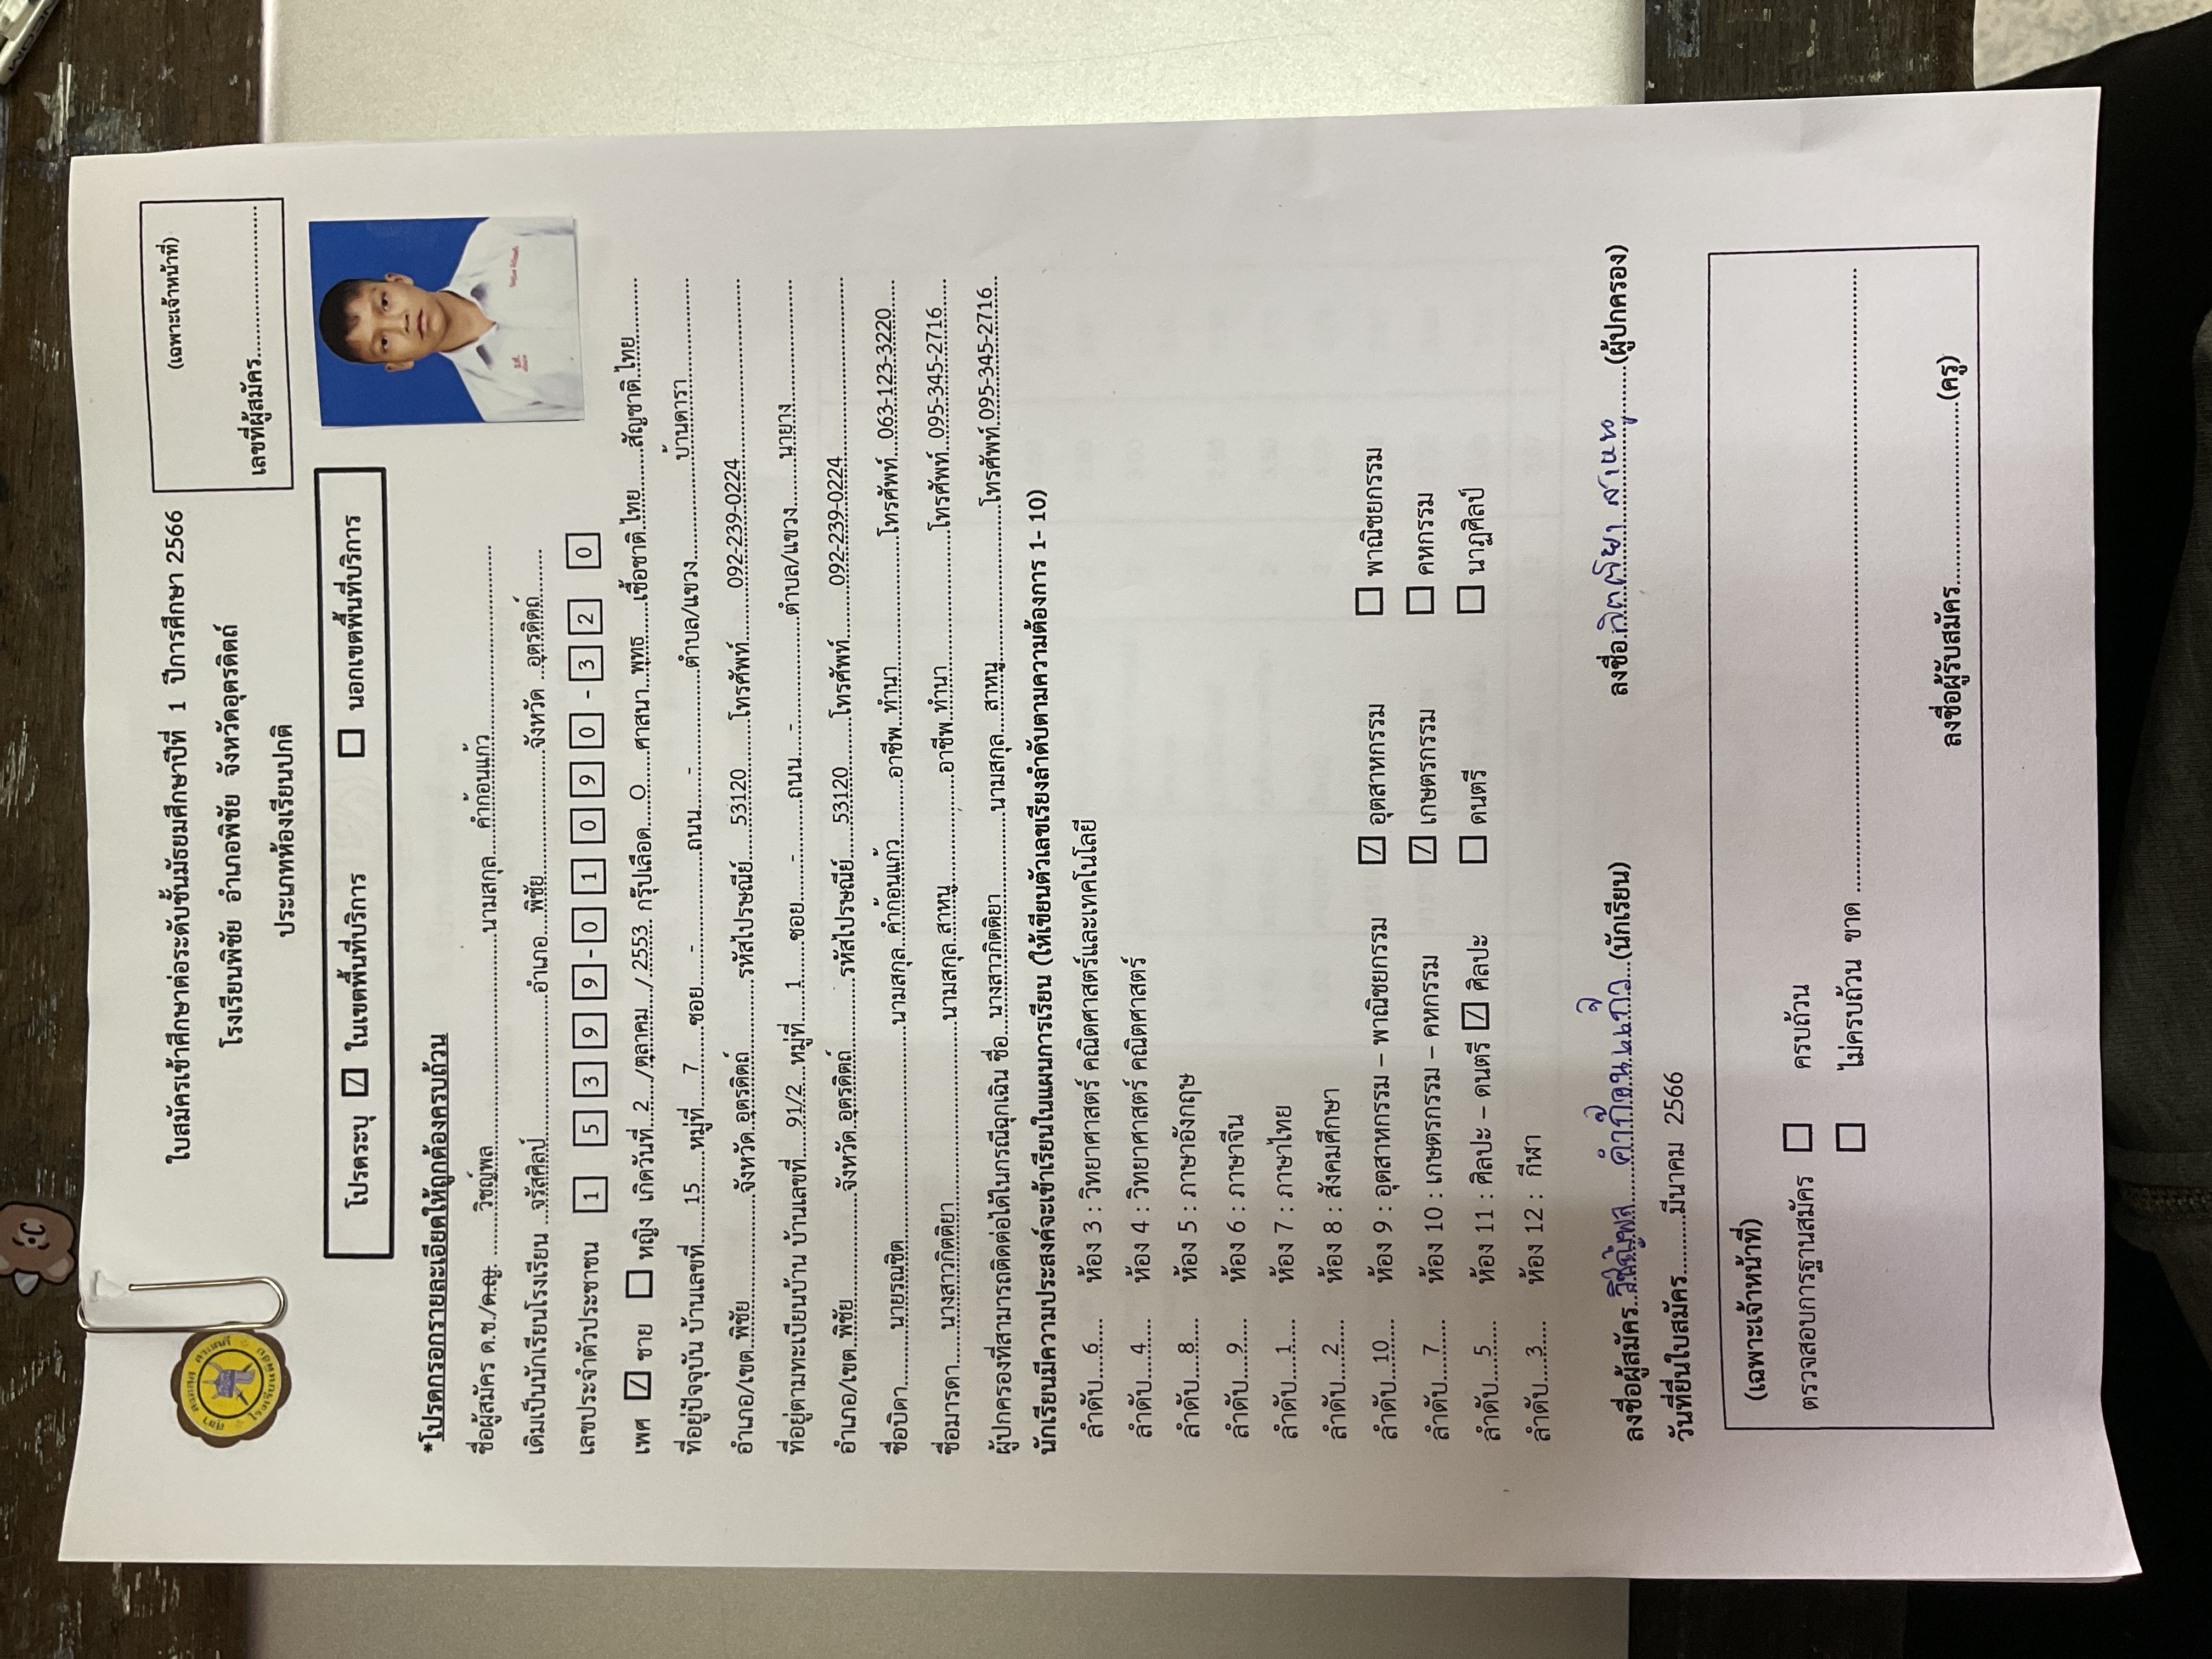 (เฉพาะเจ้าหน้าที่)
เลขที่ผู้สมัคร..............................
ใบสมัครเข้าศึกษาต่อระดับชั้นมัธยมศึกษาปีที่ 1 ปีการศึกษา 2566
โรงเรียนพิชัย อำเภอพิชัย จังหวัดอุตรดิตถ์
ประเภทห้องเรียนปกติ
โปรดระบุ ☑ ในเขตพื้นที่บริการ ☐ นอกเขตพื้นที่บริการ
*โปรดกรอกรายละเอียดให้ถูกต้องครบถ้วน
ชื่อผู้สมัคร ด.ช./ด.ญ. ........วิชญ์พล..............................นามสกุล....คำก้อนแก้ว..............................
เดิมเป็นนักเรียนโรงเรียน ..จรัสศิลป์....................อำเภอ....พิชัย....................จังหวัด ..อุตรดิตถ์........
เลขประจำตัวประชาชน 1 5 3 9 9 - 0 1 0 9 0 - 3 2 0
เพศ ☑ ชาย ☐ หญิง เกิดวันที่..2..../ตุลาคม.../ 2553.. กรุ๊ปเลือด....O........ศาสนา..พุทธ......เชื้อชาติ.ไทย.......สัญชาติ.ไทย..........
ที่อยู่ปัจจุบัน บ้านเลขที่......15......หมู่ที่.....7......ซอย......-...............ถนน......-...............ตำบล/แขวง...............บ้านดารา...............
อำเภอ/เขต..พิชัย....................จังหวัด..อุตรดิตถ์..............รหัสไปรษณีย์......53120........โทรศัพท์........092-239-0224..............................
ที่อยู่ตามทะเบียนบ้าน บ้านเลขที่......91/2...หมู่ที่.....1......ซอย...........-........ถนน....-..................ตำบล/แขวง.........นายาง....................
อำเภอ/เขต..พิชัย....................จังหวัด..อุตรดิตถ์..............รหัสไปรษณีย์......53120........โทรศัพท์........092-239-0224..............................
ชื่อบิดา..........นายรณชิต..............................นามสกุล..คำก้อนแก้ว..........อาชีพ..ทำนา....................โทรศัพท์...063-123-3220.....
ชื่อมารดา......นางสาวกิตติยา..............................นามสกุล..สาหนู....................อาชีพ..ทำนา....................โทรศัพท์...095-345-2716.....
ผู้ปกครองที่สามารถติดต่อได้ในกรณีฉุกเฉิน ชื่อ...นางสาวกิตติยา...............นามสกุล....สาหนู....................โทรศัพท์ 095-345-2716
นักเรียนมีความประสงค์จะเข้าเรียนในแผนการเรียน (ให้เขียนตัวเลขเรียงลำดับตามความต้องการ 1- 10)
ลำดับ....6..... ห้อง 3 : วิทยาศาสตร์ คณิตศาสตร์และเทคโนโลยี
ลำดับ....4..... ห้อง 4 : วิทยาศาสตร์ คณิตศาสตร์
ลำดับ....8..... ห้อง 5 : ภาษาอังกฤษ
ลำดับ....9..... ห้อง 6 : ภาษาจีน
ลำดับ....1..... ห้อง 7 : ภาษาไทย
ลำดับ....2..... ห้อง 8 : สังคมศึกษา
ลำดับ...10.... ห้อง 9 : อุตสาหกรรม – พาณิชยกรรม ☑ อุตสาหกรรม ☐ พาณิชยกรรม
ลำดับ....7..... ห้อง 10 : เกษตรกรรม – คหกรรม ☑ เกษตรกรรม ☐ คหกรรม
ลำดับ....5..... ห้อง 11 : ศิลปะ – ดนตรี ☑ ศิลปะ ☐ ดนตรี ☐ นาฏศิลป์
ลำดับ....3..... ห้อง 12 : กีฬา
ลงชื่อผู้สมัคร..วิชญ์พล......คำก้อนแก้ว...(นักเรียน) ลงชื่อ.กิตติยา สาหนู........(ผู้ปกครอง)
วันที่ยื่นใบสมัคร...........มีนาคม 2566
(เฉพาะเจ้าหน้าที่)
ตรวจสอบการฐานสมัคร ☐ ครบถ้วน
☐ ไม่ครบถ้วน ขาด ............................................................
ลงชื่อผู้รับสมัคร........................................(ครู)